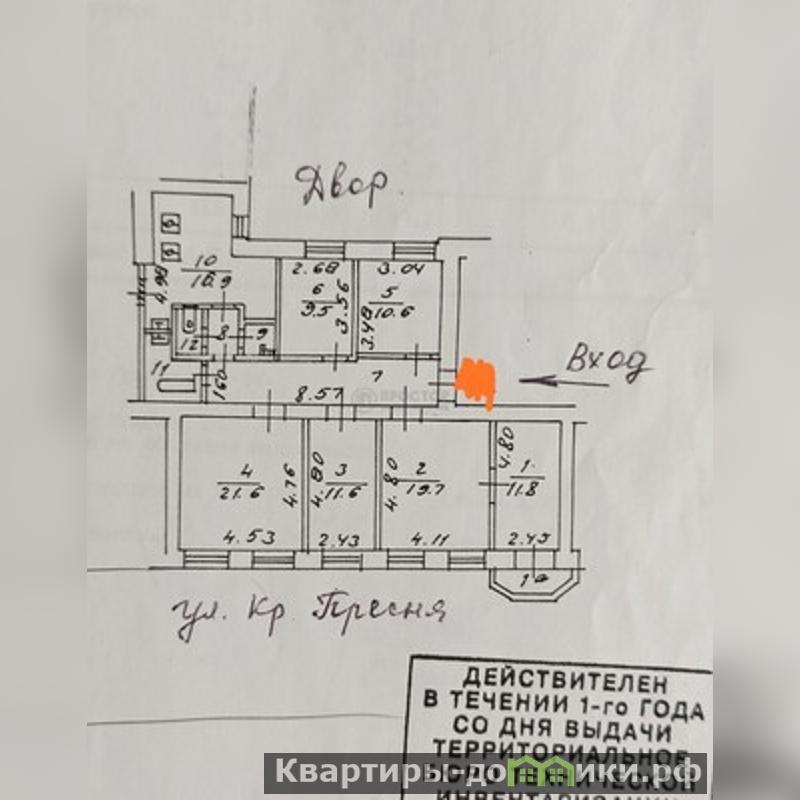 Двор
10
16.9
4.98
2.68
6
9.5
3.56
3.04
5
10.6
3.48
8
9
12
11
160
7
8.57
ПРОСТОР
Вход
4
21.6
4.76
4.53
3
11.6
4.80
2.43
2
19.7
4.80
4.11
1
11.8
4.80
2.45
1а
ул. Кр Пресня
ДЕЙСТВИТЕЛЕН
В ТЕЧЕНИИ 1-го ГОДА
СО ДНЯ ВЫДАЧИ
ТЕРРИТОРИАЛЬНОЕ
Квартиры-домики.рф